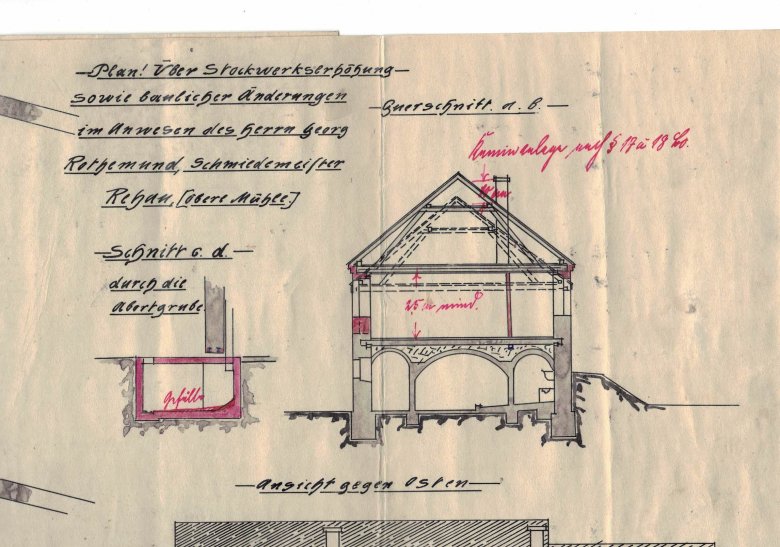 Plan! Über Stockwerkserhöhung
sowie baulicher Änderungen
im Anwesen des Herrn Georg
Rothemund, Schmiedemeister
Rehau, [Obere Mühle.]
Querschnitt. a. b.
Kaminanlage nach § 17 u 18 Bo.
Schnitt c. d.
durch die
Abortgrube
2,5 m mind.
Gefälle
Ansicht gegen Osten